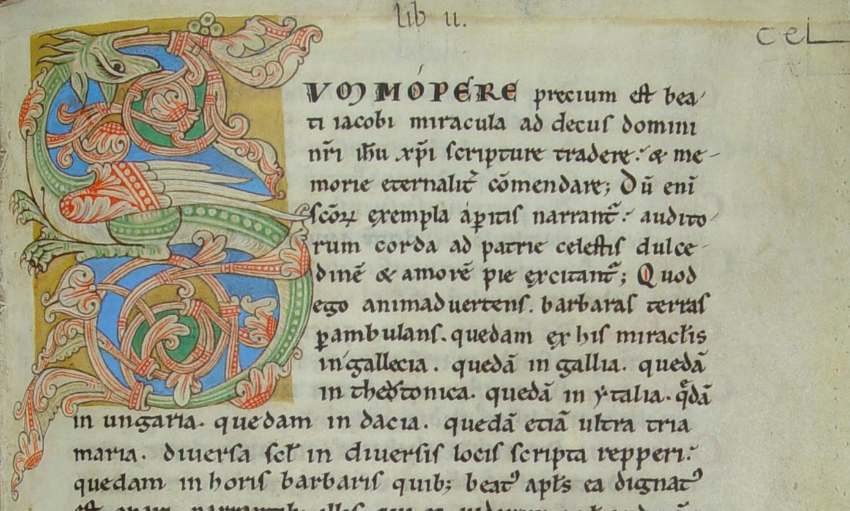 lib ii.
cel
SVOMOPERE precium est bea-
ti iacobi miracula ad decus domini
nr̄i ih̄u xp̄i scripture tradere: & me-
morie eternalit̄ cōmendare; Dū eni
scōꝝ exempla aꝑitis narrant̄: audito-
rum corda ad patrie celestis dulce-
dinē & amorē pie excitant̄; Quod
ego animaduertens. barbaras terras
ꝑambulans. quedam ex his miracl̄is
in gallecia. quedā in gallia. quedā
in theotonica. quedā in ytalia. q̄dā
in ungaria. quedam in dacia. quedā etiā ultra tria
maria. diuersa scł in diuersis locis scripta repperi:
quedam in horis barbaris quib; beatꝰ apl̄s ea dignatꝰ
est